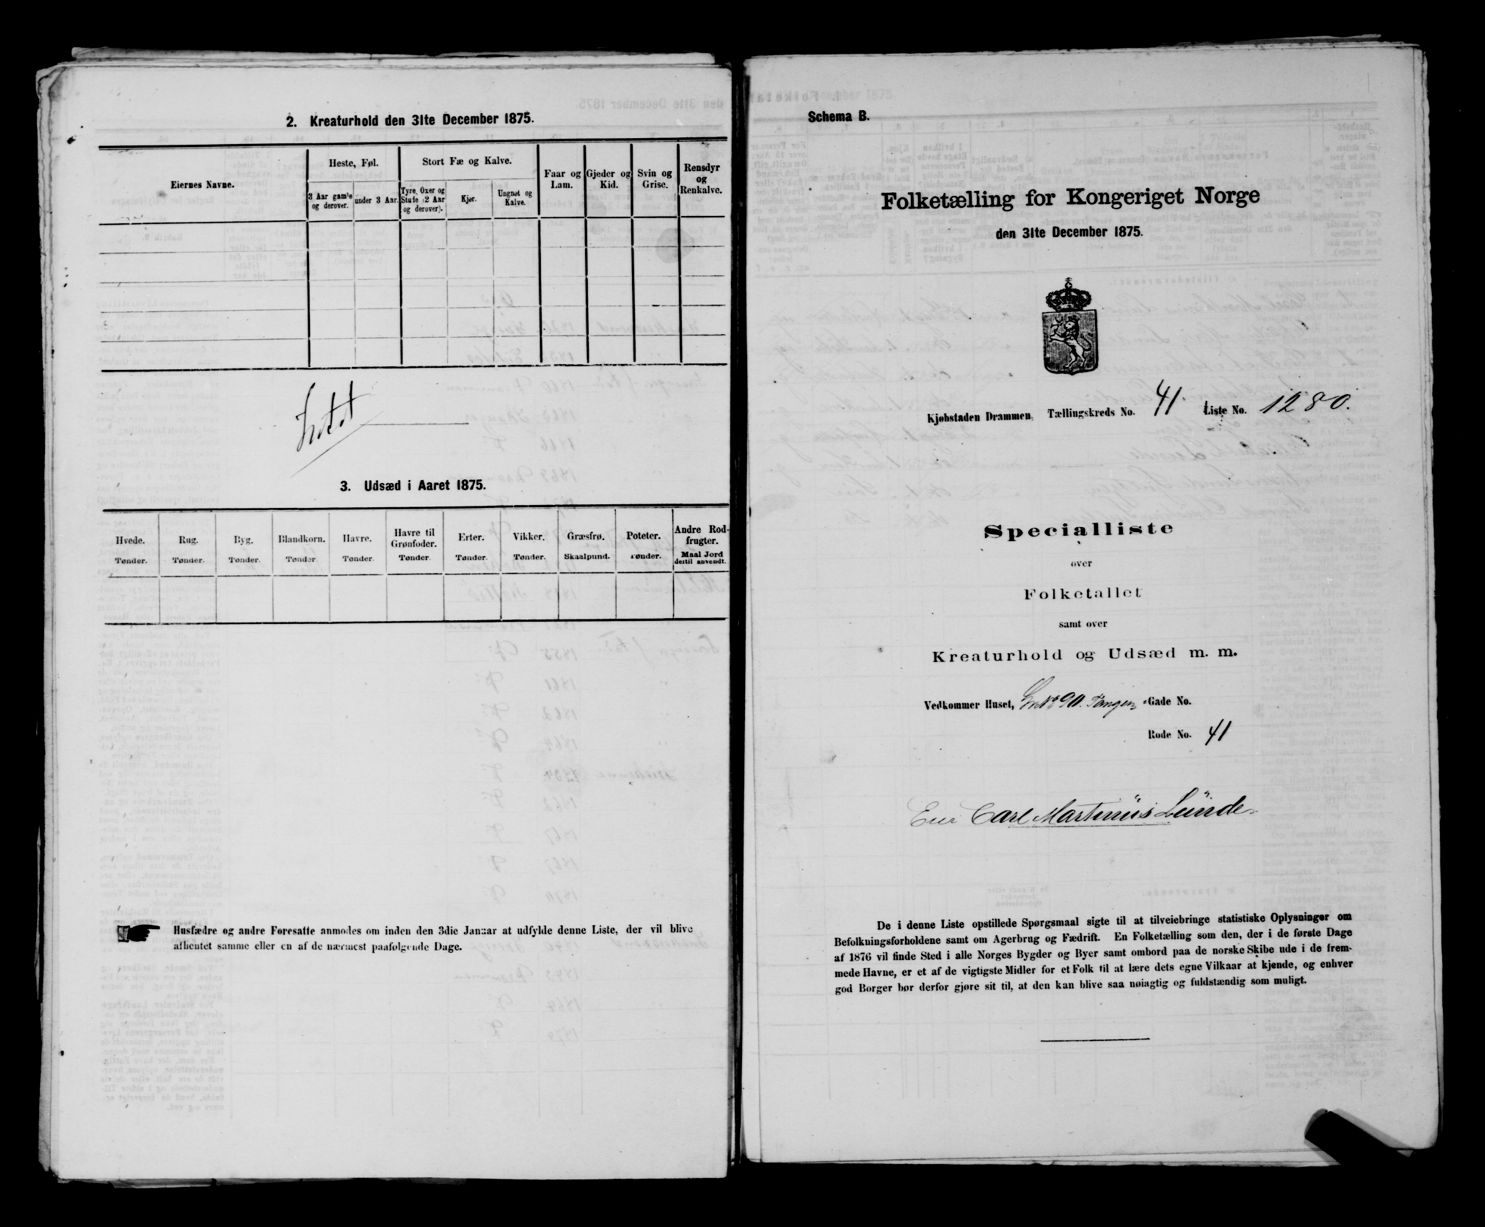 2. Kreaturhold den 31te December 1875.
Eiernes Navne.
Heste, Føl.
Stort Fæ og Kalve.
Faar og Lam.
Gjeder og Kid.
Svin og Grise.
Rensdyr og Renkalve.
3 Aar gamle og derover.
under 3 Aar.
Tyre, Oxer og Stude (2 Aar og derover).
Kjør.
Ungnøt og Kalve.
Intet
3. Udsæd i Aaret 1875.
Hvede. Rug. Byg. Blandkorn. Havre. Havre til Grønfoder. Erter. Vikker. Græsfrø. Poteter. Andre Rodfrugter.
Tønder. Tønder. Tønder. Tønder. Tønder. Tønder. Tønder. Tønder. Skaalpund. Tønder. Maal Jord dertil anvendt.
Husfædre og andre Foresatte anmodes om inden den 3die Januar at udfylde denne Liste, der vil blive
afhentet samme eller en af de nærmest paafølgende Dage.
Schema B.
Folketælling for Kongeriget Norge
den 31te December 1875.
Kjøbstaden Drammen, Tællingskreds No. 41 Liste No. 1280.
Specialliste
over
Folketallet
samt over
Kreaturhold og Udsæd m. m.
Vedkommer Huset, Tangen Gade No.
Rode No. 41
Eier Carl Martinius Lunde
De i denne Liste opstillede Spørgsmaal sigte til at tilveiebringe statistiske Oplysninger om
Befolkningsforholdene samt om Agerbrug og Fædrift. En Folketælling som den, der i de første Dage
af 1876 vil finde Sted i alle Norges Bygder og Byer samt ombord paa de norske Skibe ude i de frem-
mede Havne, er et af de vigtigste Midler for et Folk til at lære dets egne Vilkaar at kjende, og enhver
god Borger bør derfor gjøre sit til, at den kan blive saa nøiagtig og fuldstændig som muligt.